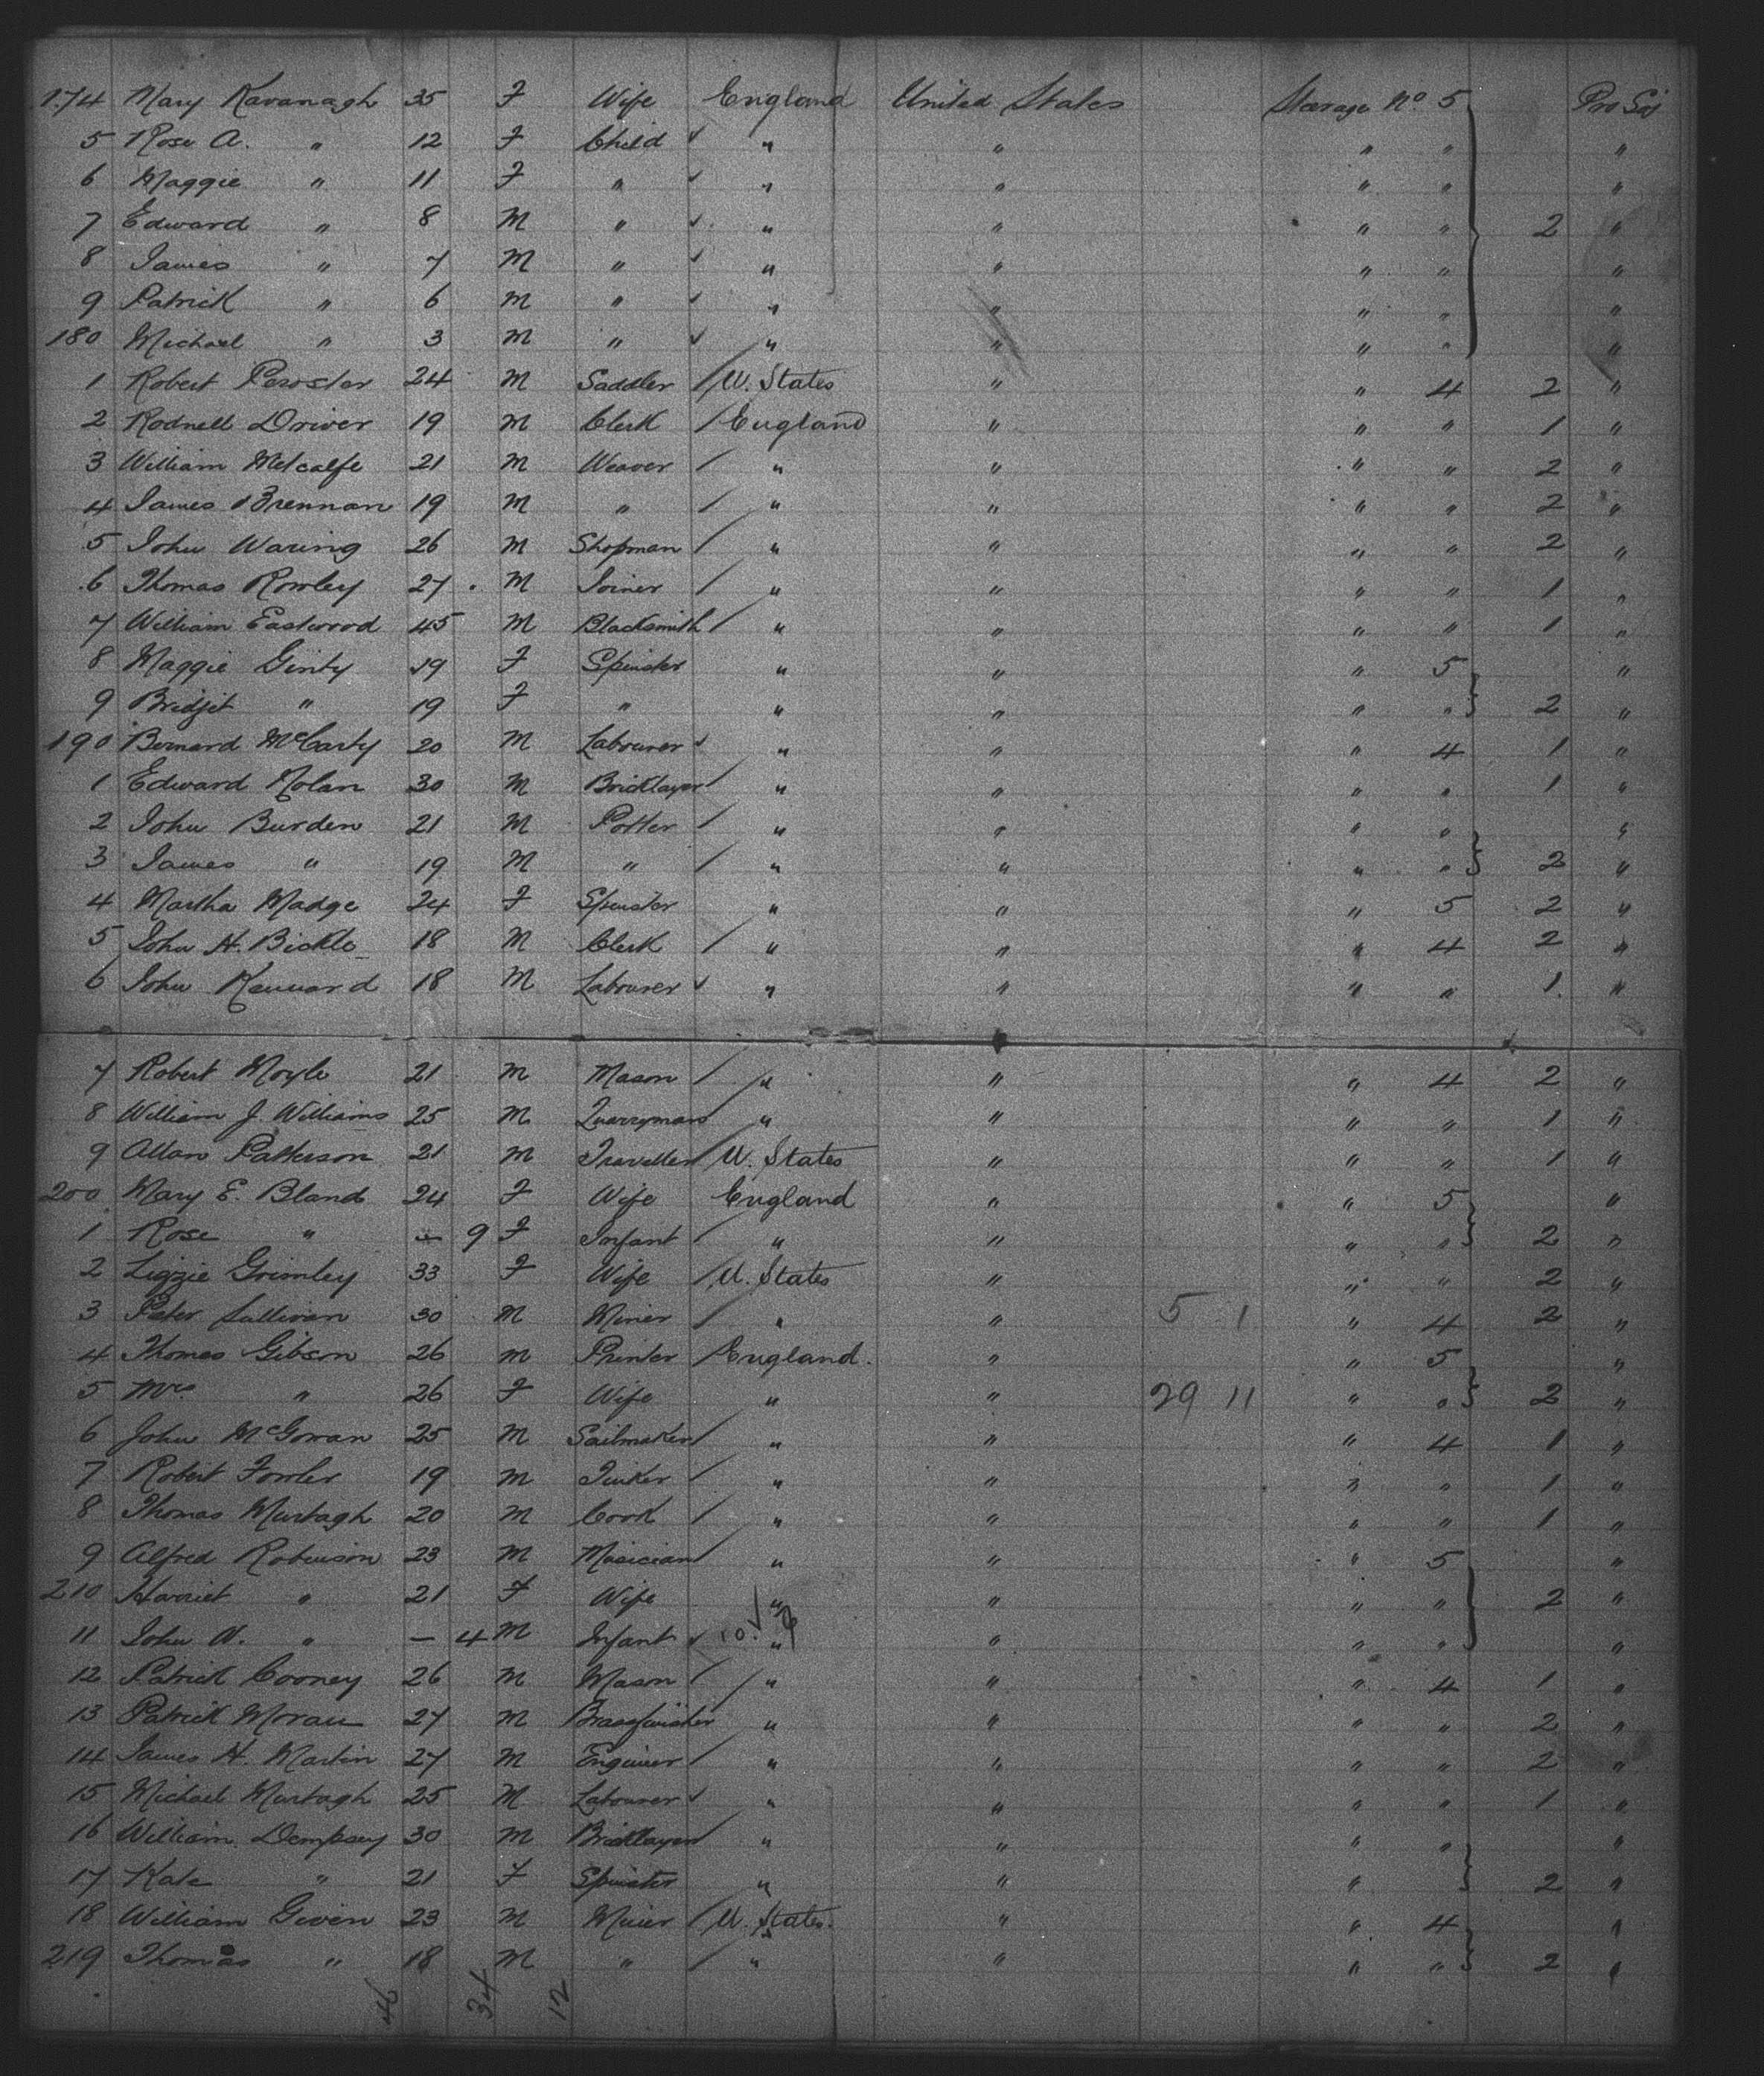 174 Mary Kavanagh 35 F Wife England United States Steerage No 5 Pro Soj
5 Rose A. " 12 F Child ✓ " " " " "
6 Maggie " 11 F " ✓ " " " " "
7 Edward " 8 M " ✓ " " " " 2 "
8 James " 7 M " ✓ " " " " "
9 Patrick " 6 M " ✓ " " " " "
180 Michael " 3 M " ✓ " " " " "
1 Robert 24 M Saddler / U. States " " 4 2 "
2 Rodnell Driver 19 M Clerk / England " " " 1 "
3 William Metcalfe 21 M Weaver / " " " " 2 "
4 James Brennan 19 M " / " " " " 2 "
5 John Waring 26 M Shopman / " " " " 2 "
6 Thomas Rowley 27 M Joiner / " " " " 1 "
7 William Eastwood 45 M Blacksmith / " " " " 1 "
8 Maggie Ginty 19 F Spinster " " " 5 "
9 Bridjet " 19 F " " " " " 2 "
190 Bernard McCarty 20 M Labourer ✓ " " " 4 1 "
1 Edward Nolan 30 M Bricklayer / " " " " 1 "
2 John Burden 21 M Potter / " " " " "
3 James " 19 M " / " " " " 2 "
4 Martha Madge 24 F Spinster " " " 5 2 "
5 John H. Bickle 18 M Clerk / " " " 4 2 "
6 John Kennard 18 M Labourer ✓ " " " " 1 "
7 Robert Moyle 21 M Mason / " " " 4 2 "
8 William J. Williams 25 M Quarryman / " " " " 1 "
9 Allan Patterson 21 M Traveller / U. States " " " 1 "
200 Mary E. Bland 24 F Wife England " " 5 "
1 Rose " – 9 F Infant / " " " " 2 "
2 Lizzie Grimley 33 F Wife / U. States " " " 2 "
3 Peter Sullivan 30 M Miner / " " 5 1 " 4 2 "
4 Thomas Gibson 26 M Printer / England. " " 5 "
5 Mrs " 26 F Wife " " 29 11 " " 2 "
6 John McGowan 25 M Sailmaker / " " " 4 1 "
7 Robert Fowler 19 M Tinker / " " " " 1 "
8 Thomas Murtagh 20 M Cook / " " " " 1 "
9 Alfred Robinson 23 M Musician / " " " 5 "
210 Harriet " 21 F Wife " " " " 2 "
11 John W. " – 4 M Infant ✓ 10.✓ " " " " "
12 Patrick Cooney 26 M Mason / " " " 4 1 "
13 Patrick Moran 27 M Brassfinisher " " " " 2 "
14 James H. Martin 27 M Engineer / " " " " 2 "
15 Michael Murtagh 25 M Labourer ✓ " " " " 1 "
16 William Dempsey 30 M Bricklayer / " " " " "
17 Kate " 21 F Spinster " " " 2 "
18 William Given 23 M Miner / U. States. " " 4 "
219 Thomas " 18 M " / " " " " 2 "
46 34 12